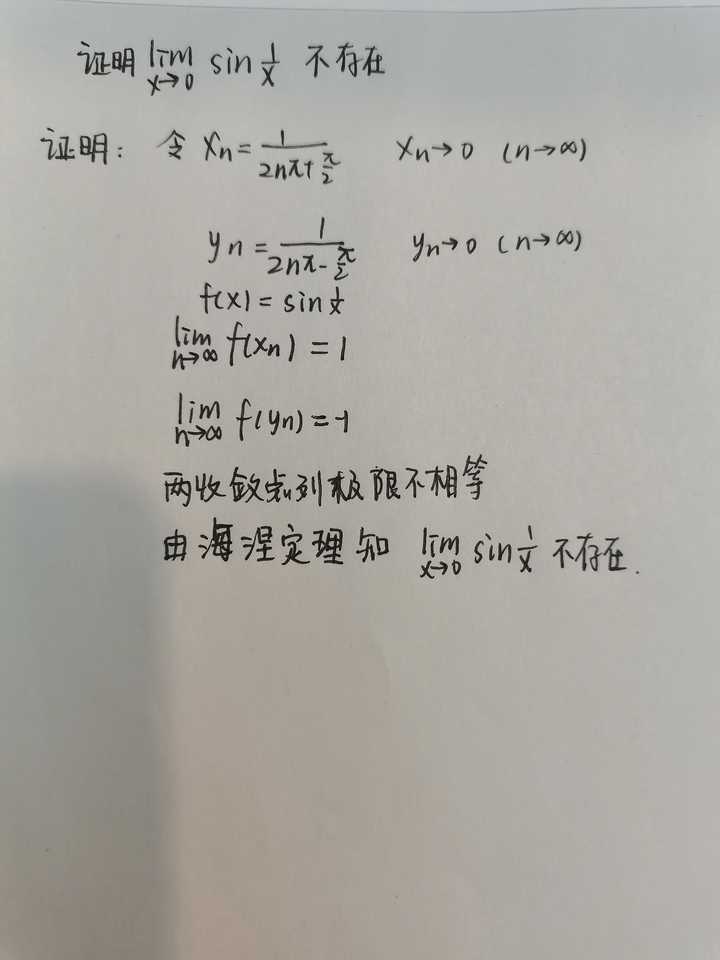 证明 lim x→0 sin 1/x 不存在
证明： 令 xn = 1/(2nπ+π/2) xn→0 (n→∞)
yn = 1/(2nπ-π/2) yn→0 (n→∞)
f(x) = sin 1/x
lim n→∞ f(xn) = 1
lim n→∞ f(yn) = -1
两收敛点列极限不相等
由海涅定理知 lim x→0 sin 1/x 不存在.